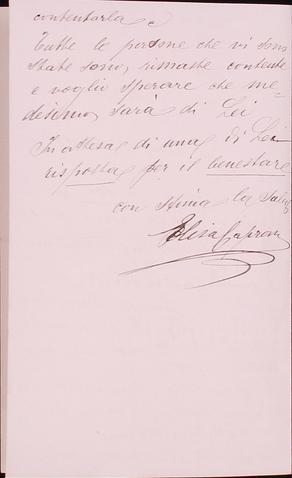 contentarla e
Tutte le persone che vi sono
state sono, rimaste contente
e voglio sperare che me-
desimo, sarà di Lei
In attesa di una di Lei
risposta per il benestare
con stima la saluto
Elisa Caproni